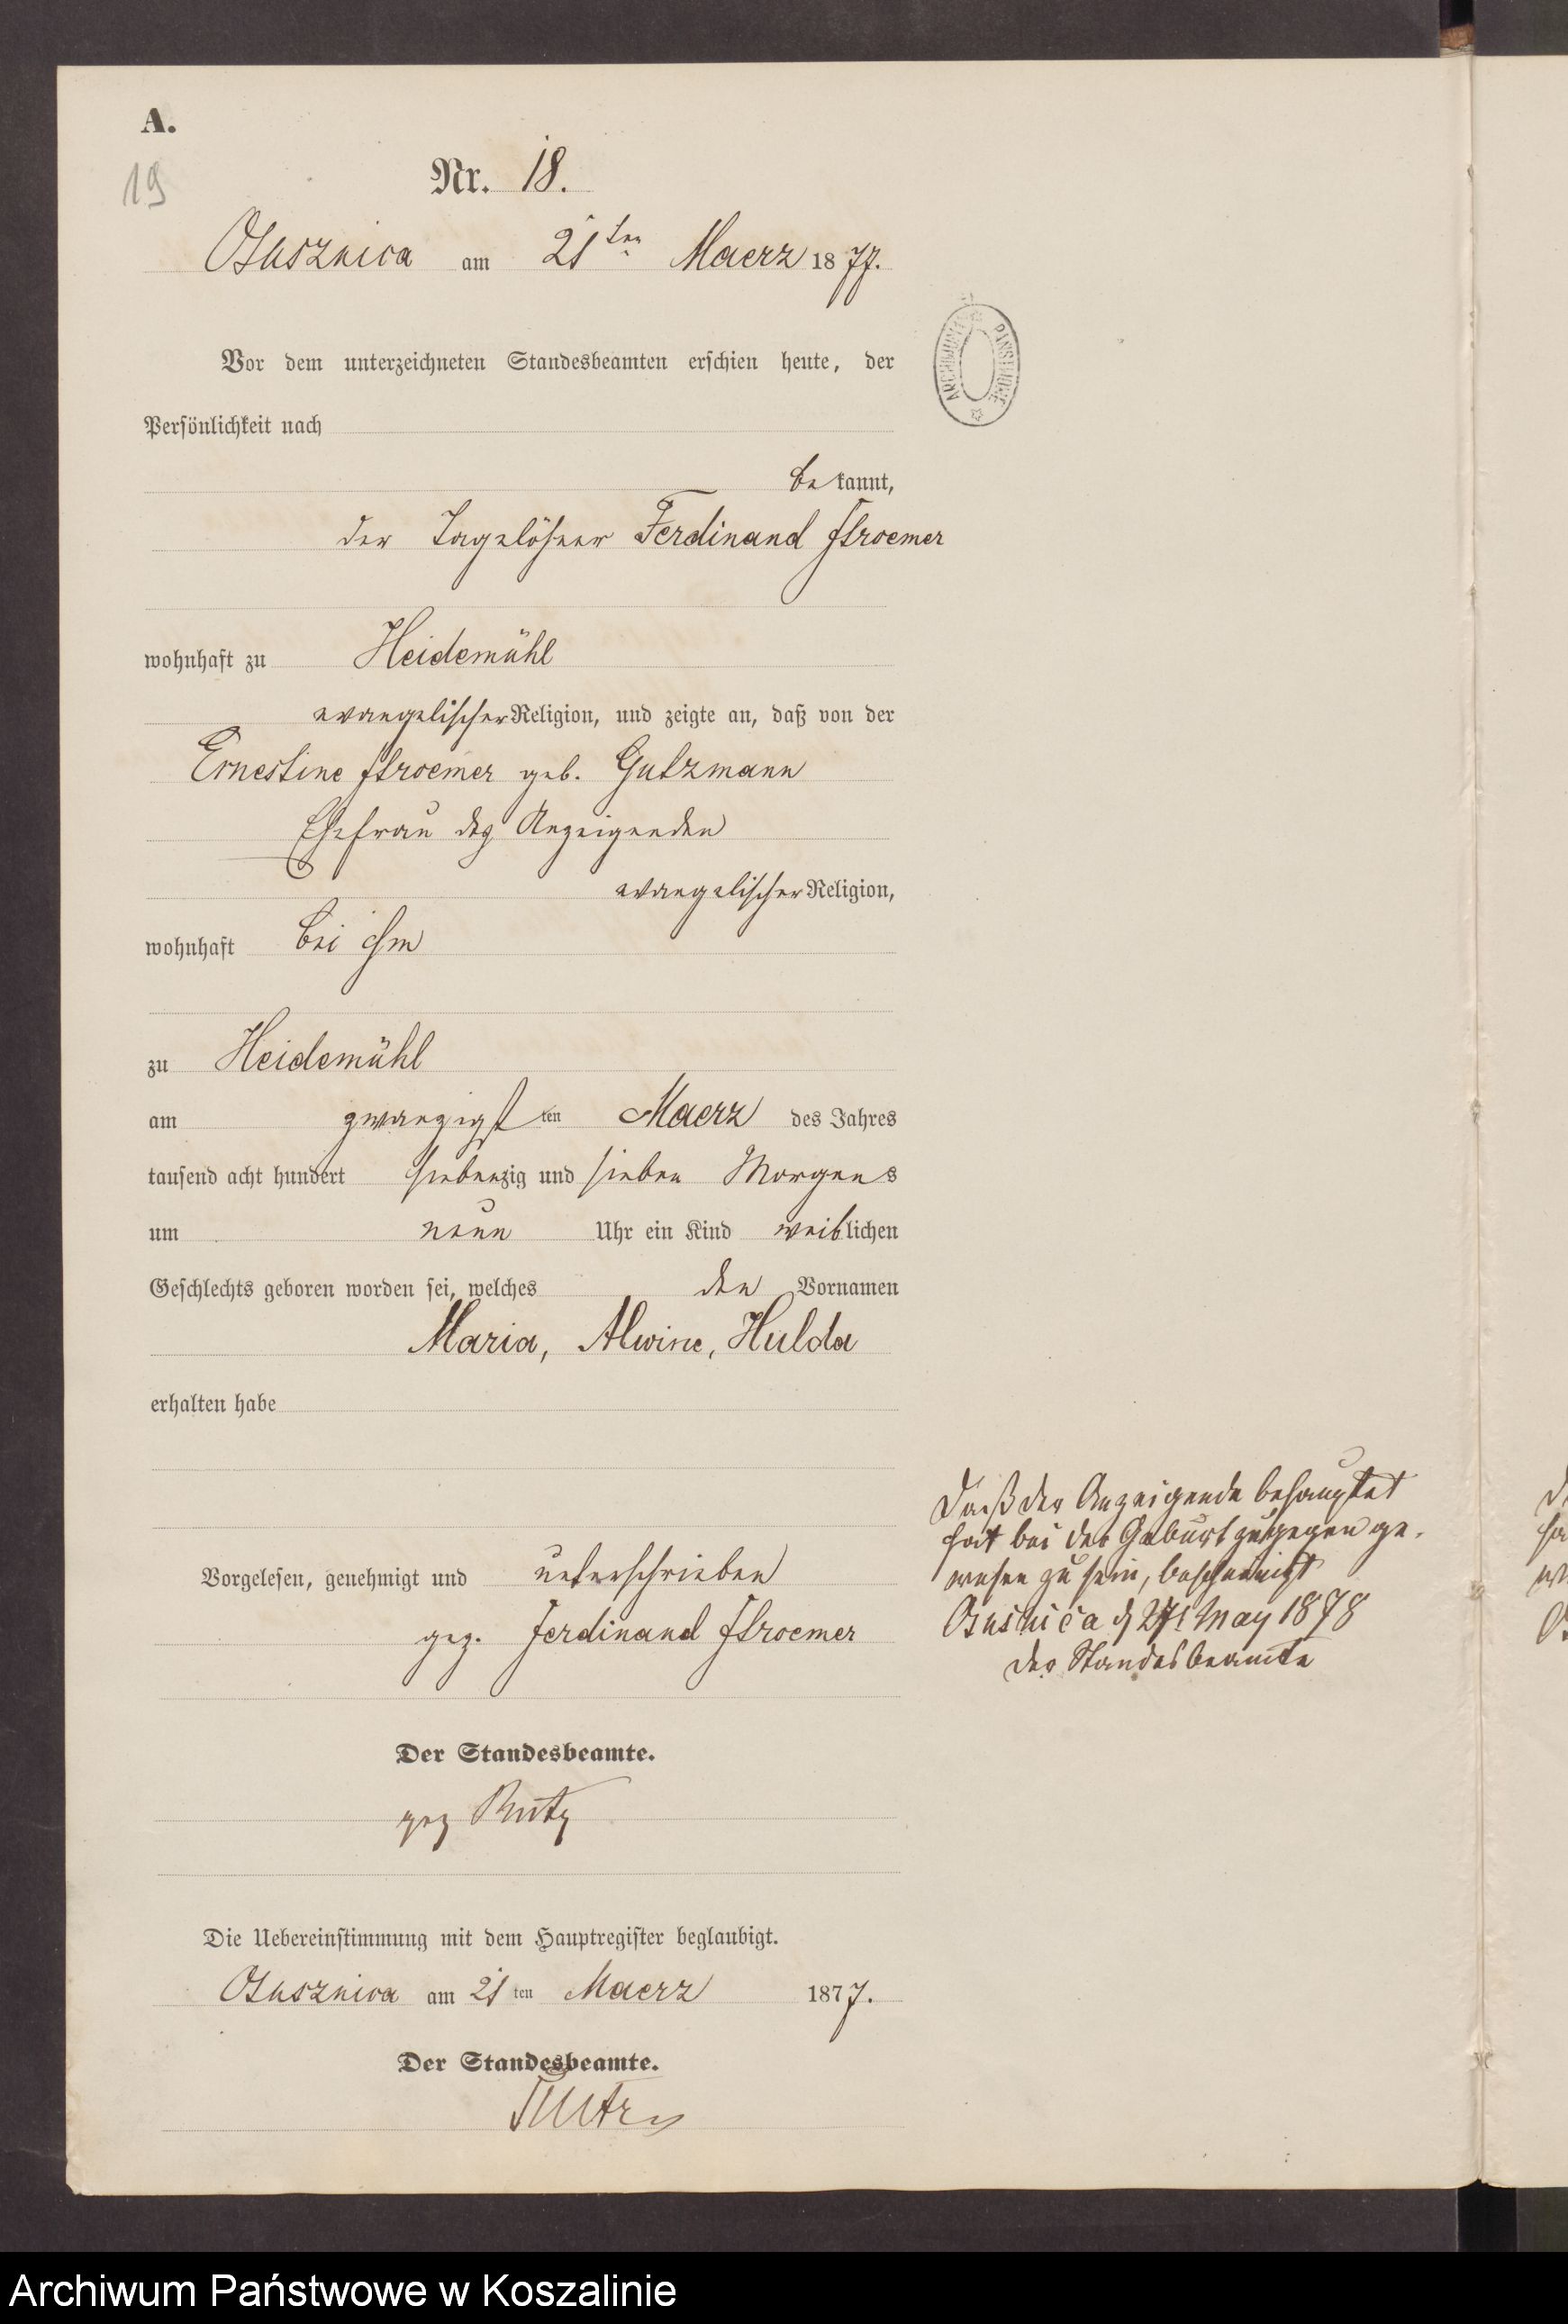 A.
19
Nr. 18.
Osusznica am 21ten Maerz 1877.
ARCHIWUM PAŃSTWOWE
Vor dem unterzeichneten Standesbeamten erschien heute, der
Persönlichkeit nach
bekannt,
der Tagelöhner Ferdinand Stroemer
wohnhaft zu Heidemühl
evangelischer Religion, und zeigte an, daß von der
Ernestine Stroemer geb. Gutzmann
Ehefrau des Anzeigenden
evangelischer Religion,
wohnhaft bei ihm
zu Heidemühl
am zwanzigsten Maerz des Jahres
tausend acht hundert siebenzig und sieben Morgens
um neun Uhr ein Kind weiblichen
Geschlechts geboren worden sei, welches den Vornamen
Maria, Alwine, Hulda
erhalten habe
Vorgelesen, genehmigt und unterschrieben
gez. Ferdinand Stroemer
Der Standesbeamte.
gez
Die Uebereinstimmung mit dem Hauptregister beglaubigt.
Osusznica am 21ten Maerz 1877.
Der Standesbeamte.
Daß der Anzeigende behauptet
hat bei der Geburt zugegen ge-
wesen zu sein, bescheinigt
May 1878
der Standesbeamte
Archiwum Państwowe w Koszalinie